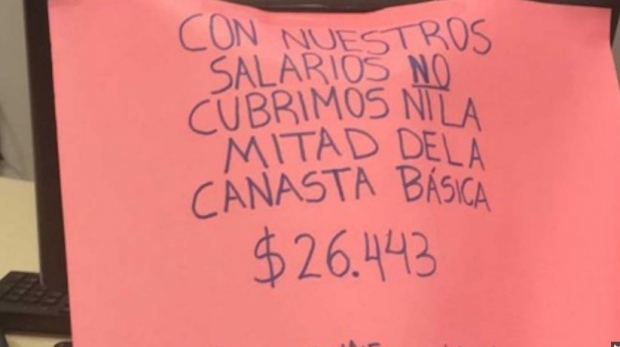 CON NUESTROS
SALARIOS NO
CUBRIMOS NI LA
MITAD DE LA
CANASTA BÁSICA
$26.443